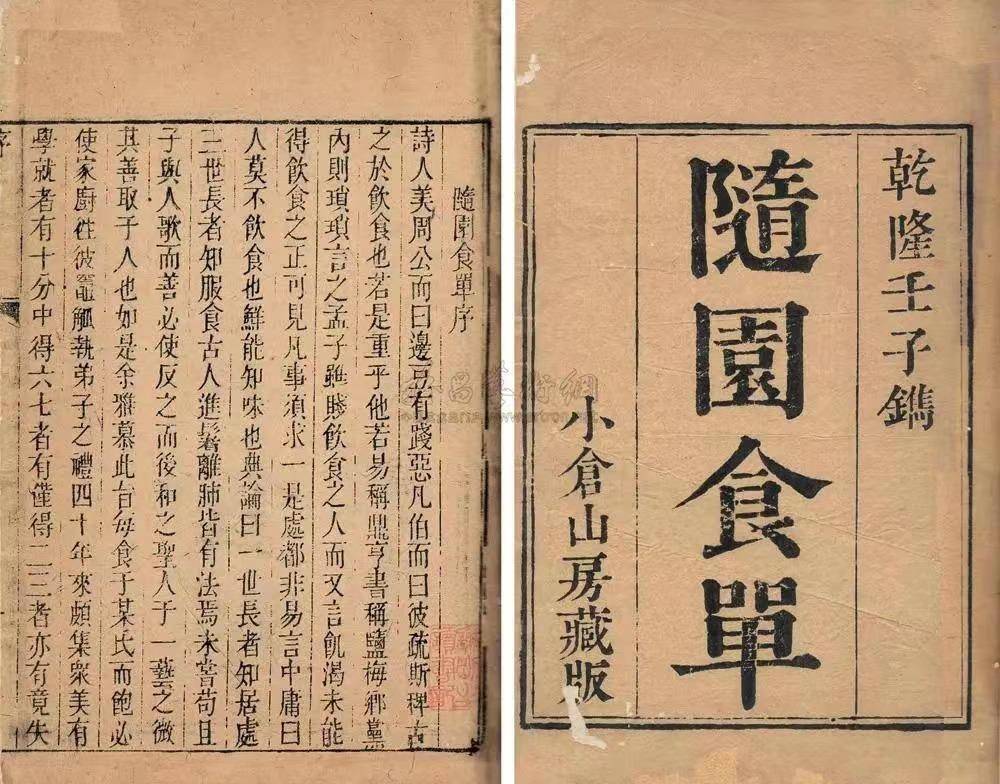 乾隆壬子鐫
隨園食單
小倉山房藏版
隨園食單序
詩人美周公而曰邊豆有踐惡凡伯而曰彼疏斯稗古
之於飲食也若是重乎他若易稱鼎亨書稱鹽梅鄉黨
內則瑣瑣言之孟子雖賤飲食之人而又言飢渴未能
得飲食之正可見凡事須求一是處都非易言中庸曰
人莫不飲食也鮮能知味也典論曰一世長者知居處
三世長者知服食古人進鬐離肺皆有法焉未嘗苟且
子與人歌而善必使反之而後和之聖人于一藝之微
其善取于人也如是余雅慕此旨每食于某氏而飽必
使家廚徃彼竈觚執弟子之禮四十年來頗集衆美有
學就者有十分中得六七者有僅得二三者亦有竟失
序